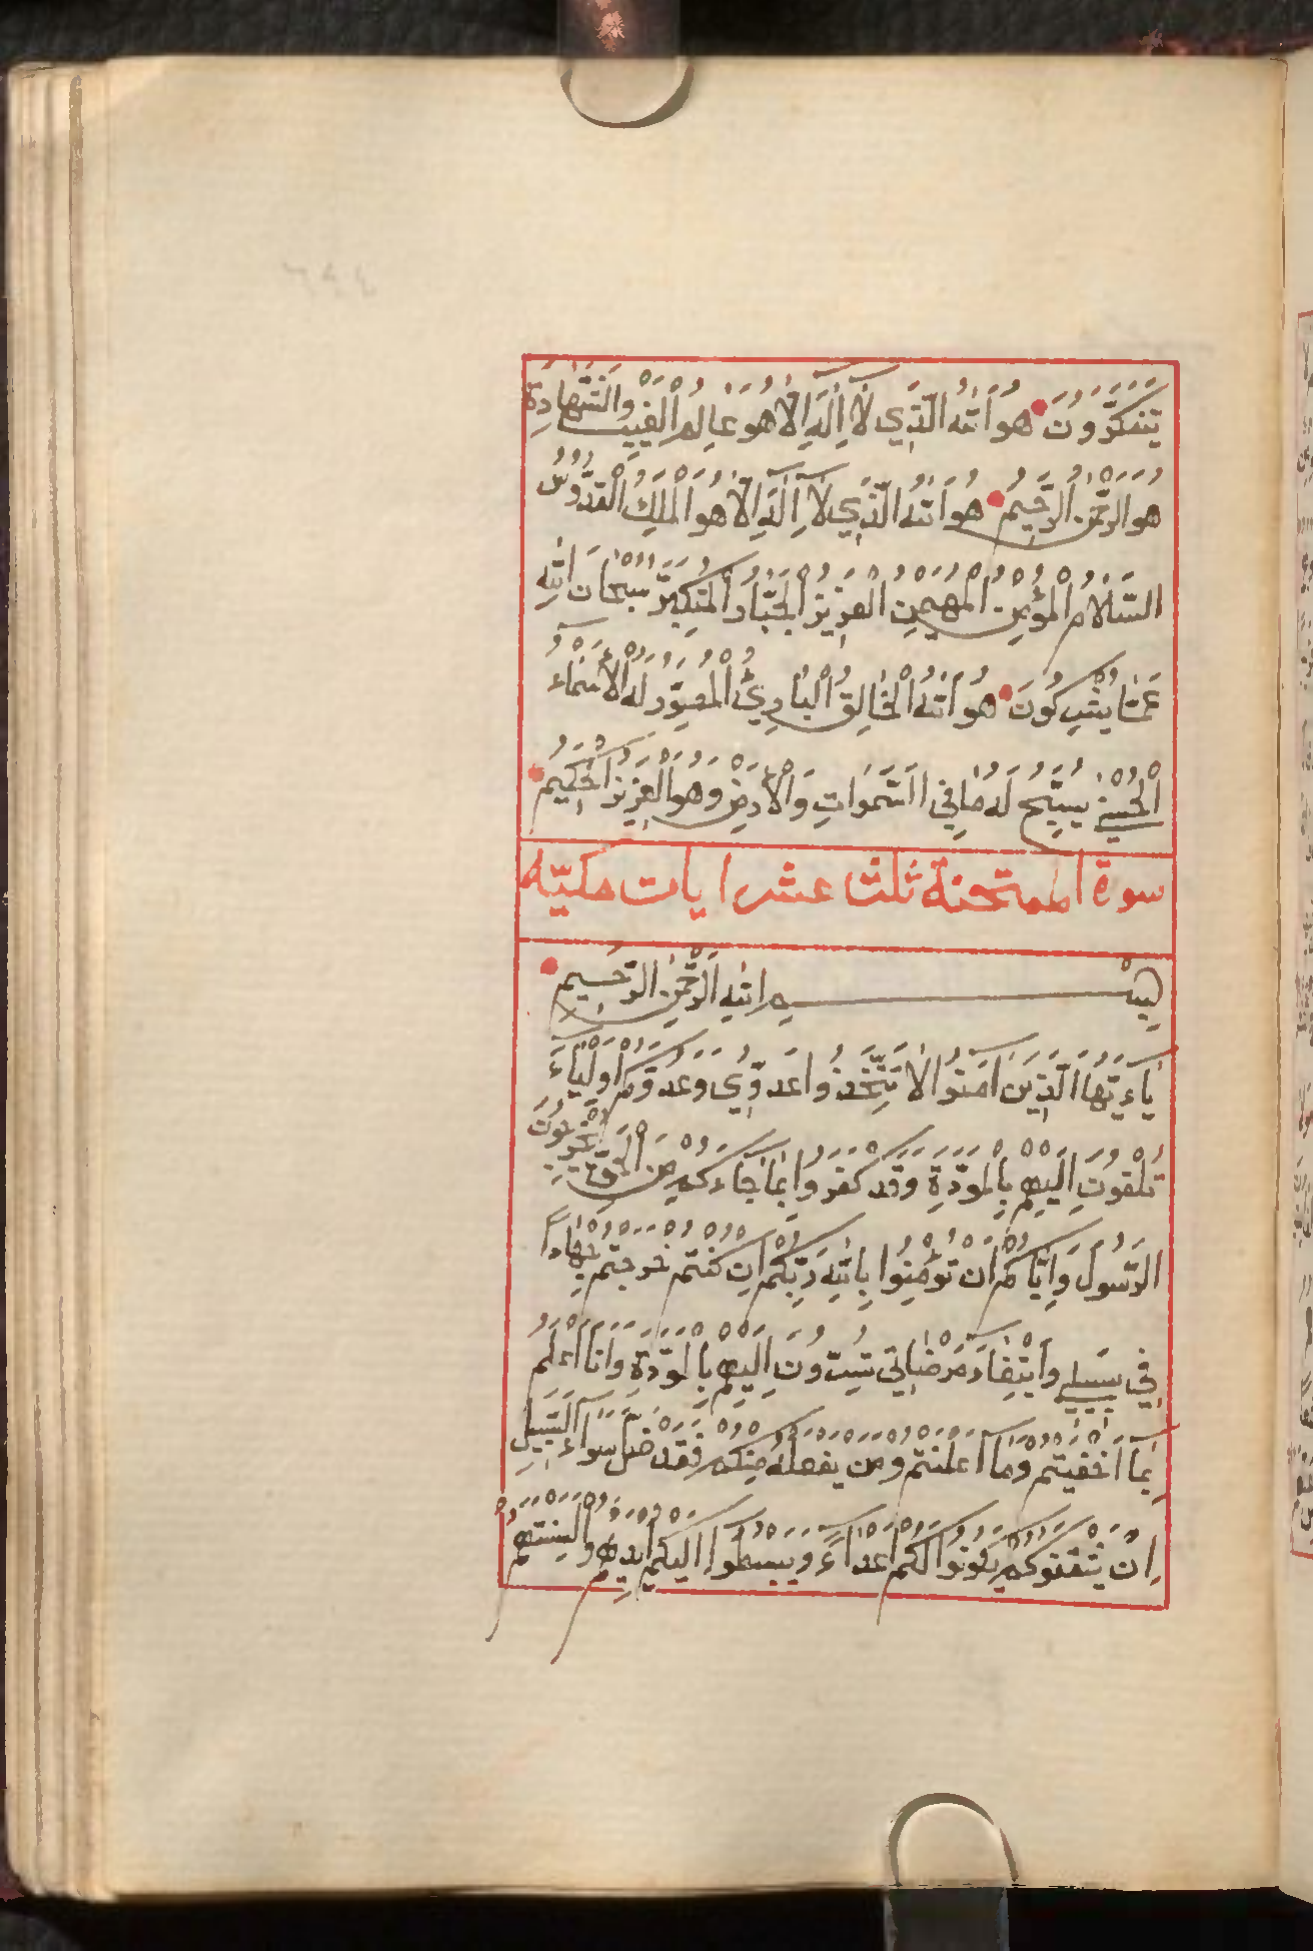 يَتَفَكَّرُونَ هُوَ اَللّٰهُ الَّذِي لَآ اِلٰهَ اِلَّا هُوَ عَالِمُ الْغَيْبِ وَالشَّهَادَةِ
هُوَ الرَّحْمٰنُ الرَّحِيمُ هُوَ اَللّٰهُ الَّذِي لَآ اِلٰهَ اِلَّا هُوَ الْمَلِكُ الْقُدُّوسُ
السَّلَامُ الْمُؤْمِنُ الْمُهَيْمِنُ الْعَزِيزُ الْجَبَّارُ الْمُتَكَبِّرُ سُبْحَانَ اللّٰهِ
عَمَّا يُشْرِكُونَ هُوَ اَللّٰهُ الْخَالِقُ الْبَارِئُ الْمُصَوِّرُ لَهُ الْأَسْمَآءُ
الْحُسْنٰى يُسَبِّحُ لَهُ مَا فِي السَّمَوَاتِ وَالْأَرْضِ وَهُوَ الْعَزِيزُ الْحَكِيمُ
سورة الممتحنة ثلث عشر ايات مكيّه
بِسْمِ اللّٰهِ الرَّحْمٰنِ الرَّحِيمِ
يَآءَيُّهَا الَّذِينَ اٰمَنُوا لَا تَتَّخِذُوا عَدُوِّي وَعَدُوَّكُمْ اَوْلِيَآءَ
تُلْقُونَ اِلَيْهِمْ بِالْمَوَدَّةِ وَقَدْ كَفَرُوا بِمَا جَآءَكُمْ مِنَ الْحَقِّ يُخْرِجُونَ
الرَّسُولَ وَاِيَّاكُمْ اَنْ تُؤْمِنُوا بِاللّٰهِ رَبِّكُمْ اِنْ كُنْتُمْ خَرَجْتُمْ جِهَادًا
فِي سَبِيلِي وَابْتِغَآءَ مَرْضَاتِي تُسِرُّونَ اِلَيْهِمْ بِالْمَوَدَّةِ وَاَنَا اَعْلَمُ
بِمَآ اَخْفَيْتُمْ وَمَآ اَعْلَنْتُمْ وَمَنْ يَفْعَلْهُ مِنْكُمْ فَقَدْ ضَلَّ سَوَآءَ السَّبِيلِ
اِنْ يَثْقَفُوكُمْ يَكُونُوا لَكُمْ اَعْدَآءً وَيَبْسُطُوا اِلَيْكُمْ اَيْدِيَهُمْ وَاَلْسِنَتَهُمْ